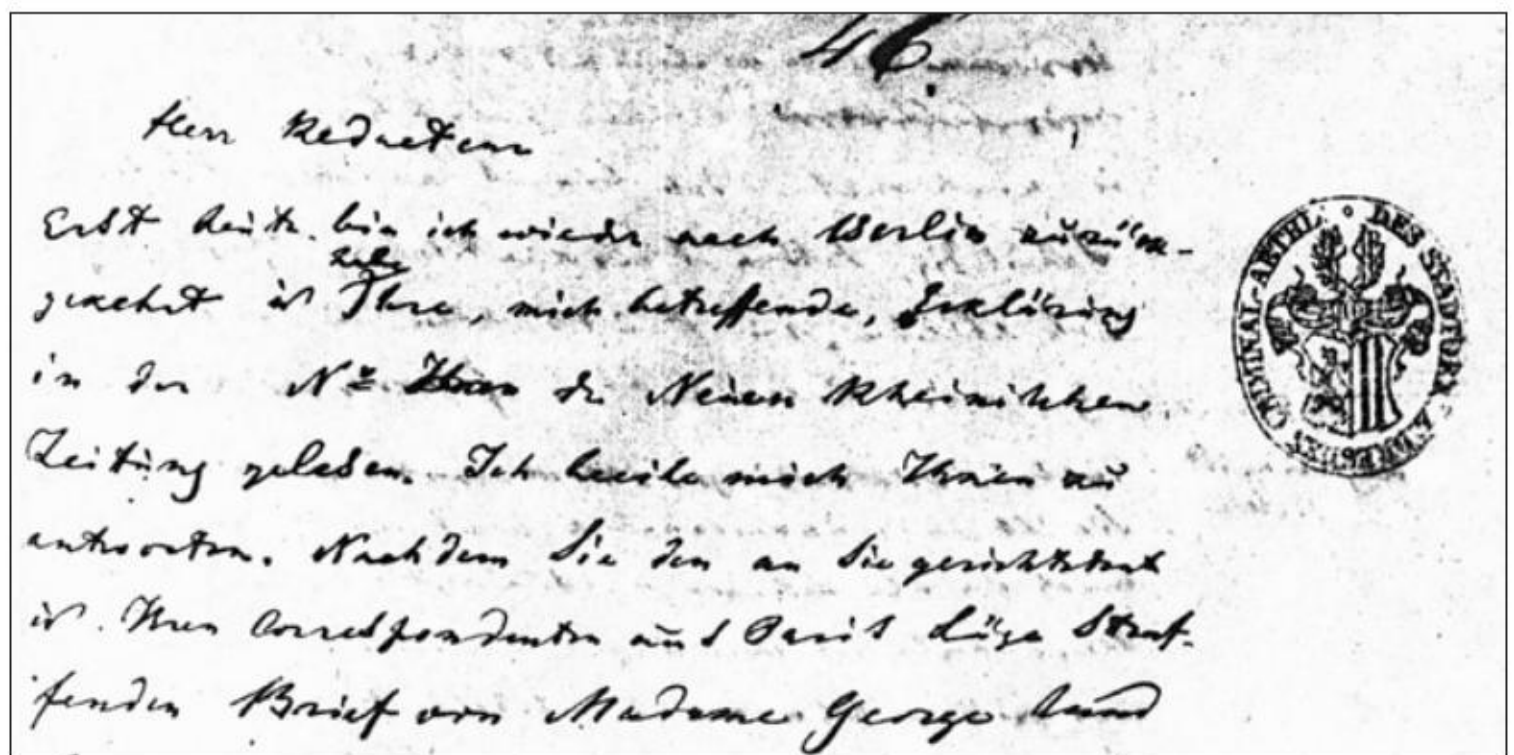 46.
Herr Redacteur
Erst heute bin ich wieder nach Berlin zurück-
habe
gekehrt u Ihre, mich betreffende, Erklärung
in der N° der Neuen Rheinischen
Zeitung gelesen. Ich beeile mich Ihnen zu
antworten. Nachdem Sie den an Sie gerichteten
u. Ihren Correspondenten aus Paris Lüge Straf-
fenden Brief von Madame George Sand
CRIMINAL-ABTHL. DES STADTGER. Z. DRESDEN